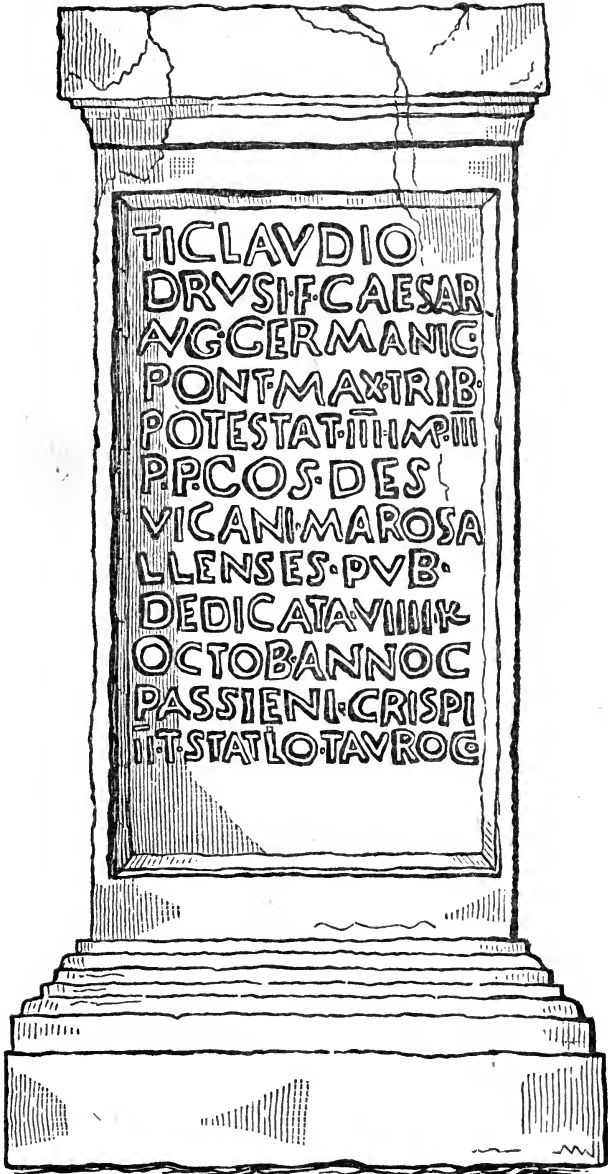 TI CLAVDIO
DRVSI·F·CAESAR
AVG·GERMANIC·
PONT·MAX·TRIB·
POTESTAT·III·IMP·III
P·P·COS·DES
VICANI·MAROSA
LLENSES·PVB·
DEDICATA·VIIII·K
OCTOB·ANNO C
PASSIENI·CRISPI
II·T·STATILO·TAVRO C·